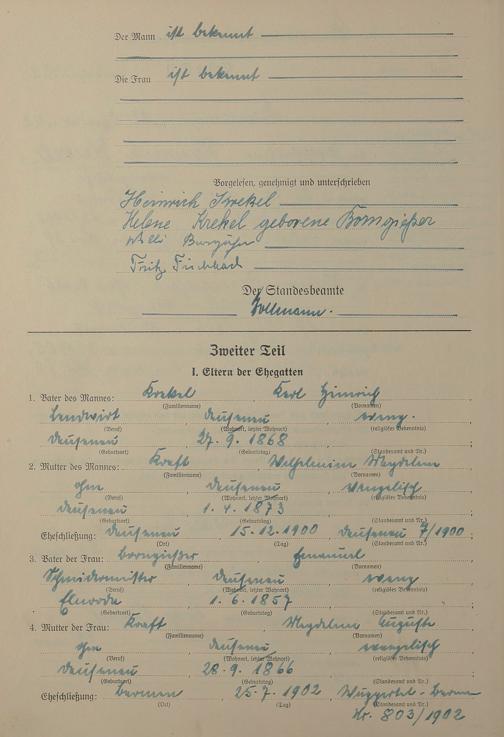 Der Mann ist bekannt
Die Frau ist bekannt
Vorgelesen, genehmigt und unterschrieben
Heinrich Krekel
Helene Krekel geborene Borngießer
Willi
Fritz
Der Standesbeamte
Vollmann.
Zweiter Teil
I. Eltern der Ehegatten
1. Vater des Mannes: Krekel Karl Heinrich
(Familienname) (Vornamen)
Landwirt Dausenau evang.
(Beruf) (Wohnort, letzter Wohnort) (religiöses Bekenntnis)
Dausenau 27. 9. 1868
(Geburtsort) (Geburtstag) (Standesamt und Nr.)
2. Mutter des Mannes: Kraft Wilhelmine Magdalene
(Familienname) (Vornamen)
ohne Dausenau evangelisch
(Beruf) (Wohnort, letzter Wohnort) (religiöses Bekenntnis)
Dausenau 1. 4. 1873
(Geburtsort) (Geburtstag) (Standesamt und Nr.)
Eheschließung: Dausenau 15. 12. 1900 Dausenau 7/1900
(Ort) (Tag) (Standesamt und Nr.)
3. Vater der Frau: Borngießer Emanuel
(Familienname) (Vornamen)
Schneidermeister Dausenau evang
(Beruf) (Wohnort, letzter Wohnort) (religiöses Bekenntnis)
1. 6. 1857
(Geburtsort) (Geburtstag) (Standesamt und Nr.)
4. Mutter der Frau: Kraft Magdalene Auguste
(Familienname) (Vornamen)
ohne Dausenau evangelisch
(Beruf) (Wohnort, letzter Wohnort) (religiöses Bekenntnis)
Dausenau 28. 9. 1866
(Geburtsort) (Geburtstag) (Standesamt und Nr.)
Eheschließung: Barmen 25. 7. 1902 Wuppertal-Barmen
(Ort) (Tag) (Standesamt und Nr.)
Nr. 803/1902